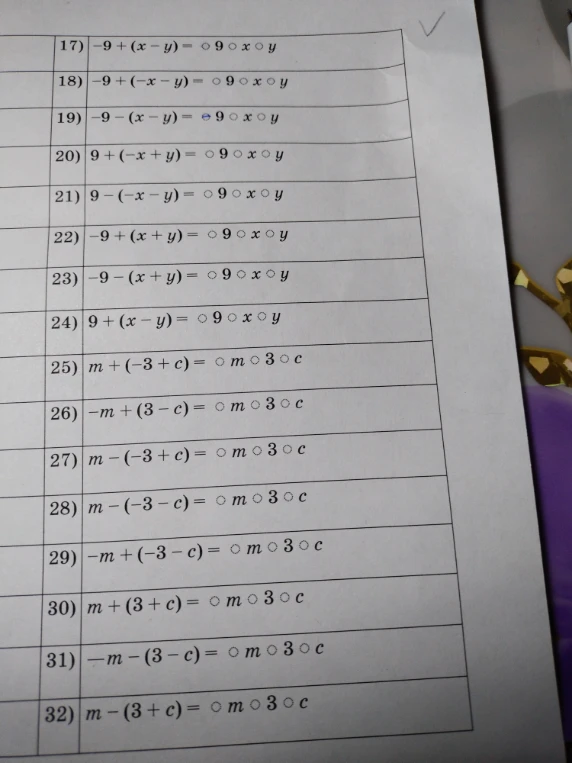 17) −9 + (x − y) = ○ 9 ○ x ○ y
18) −9 + (−x − y) = ○ 9 ○ x ○ y
19) −9 − (x − y) = ⊖ 9 ○ x ○ y
20) 9 + (−x + y) = ○ 9 ○ x ○ y
21) 9 − (−x − y) = ○ 9 ○ x ○ y
22) −9 + (x + y) = ○ 9 ○ x ○ y
23) −9 − (x + y) = ○ 9 ○ x ○ y
24) 9 + (x − y) = ○ 9 ○ x ○ y
25) m + (−3 + c) = ○ m ○ 3 ○ c
26) −m + (3 − c) = ○ m ○ 3 ○ c
27) m − (−3 + c) = ○ m ○ 3 ○ c
28) m − (−3 − c) = ○ m ○ 3 ○ c
29) −m + (−3 − c) = ○ m ○ 3 ○ c
30) m + (3 + c) = ○ m ○ 3 ○ c
31) —m − (3 − c) = ○ m ○ 3 ○ c
32) m − (3 + c) = ○ m ○ 3 ○ c